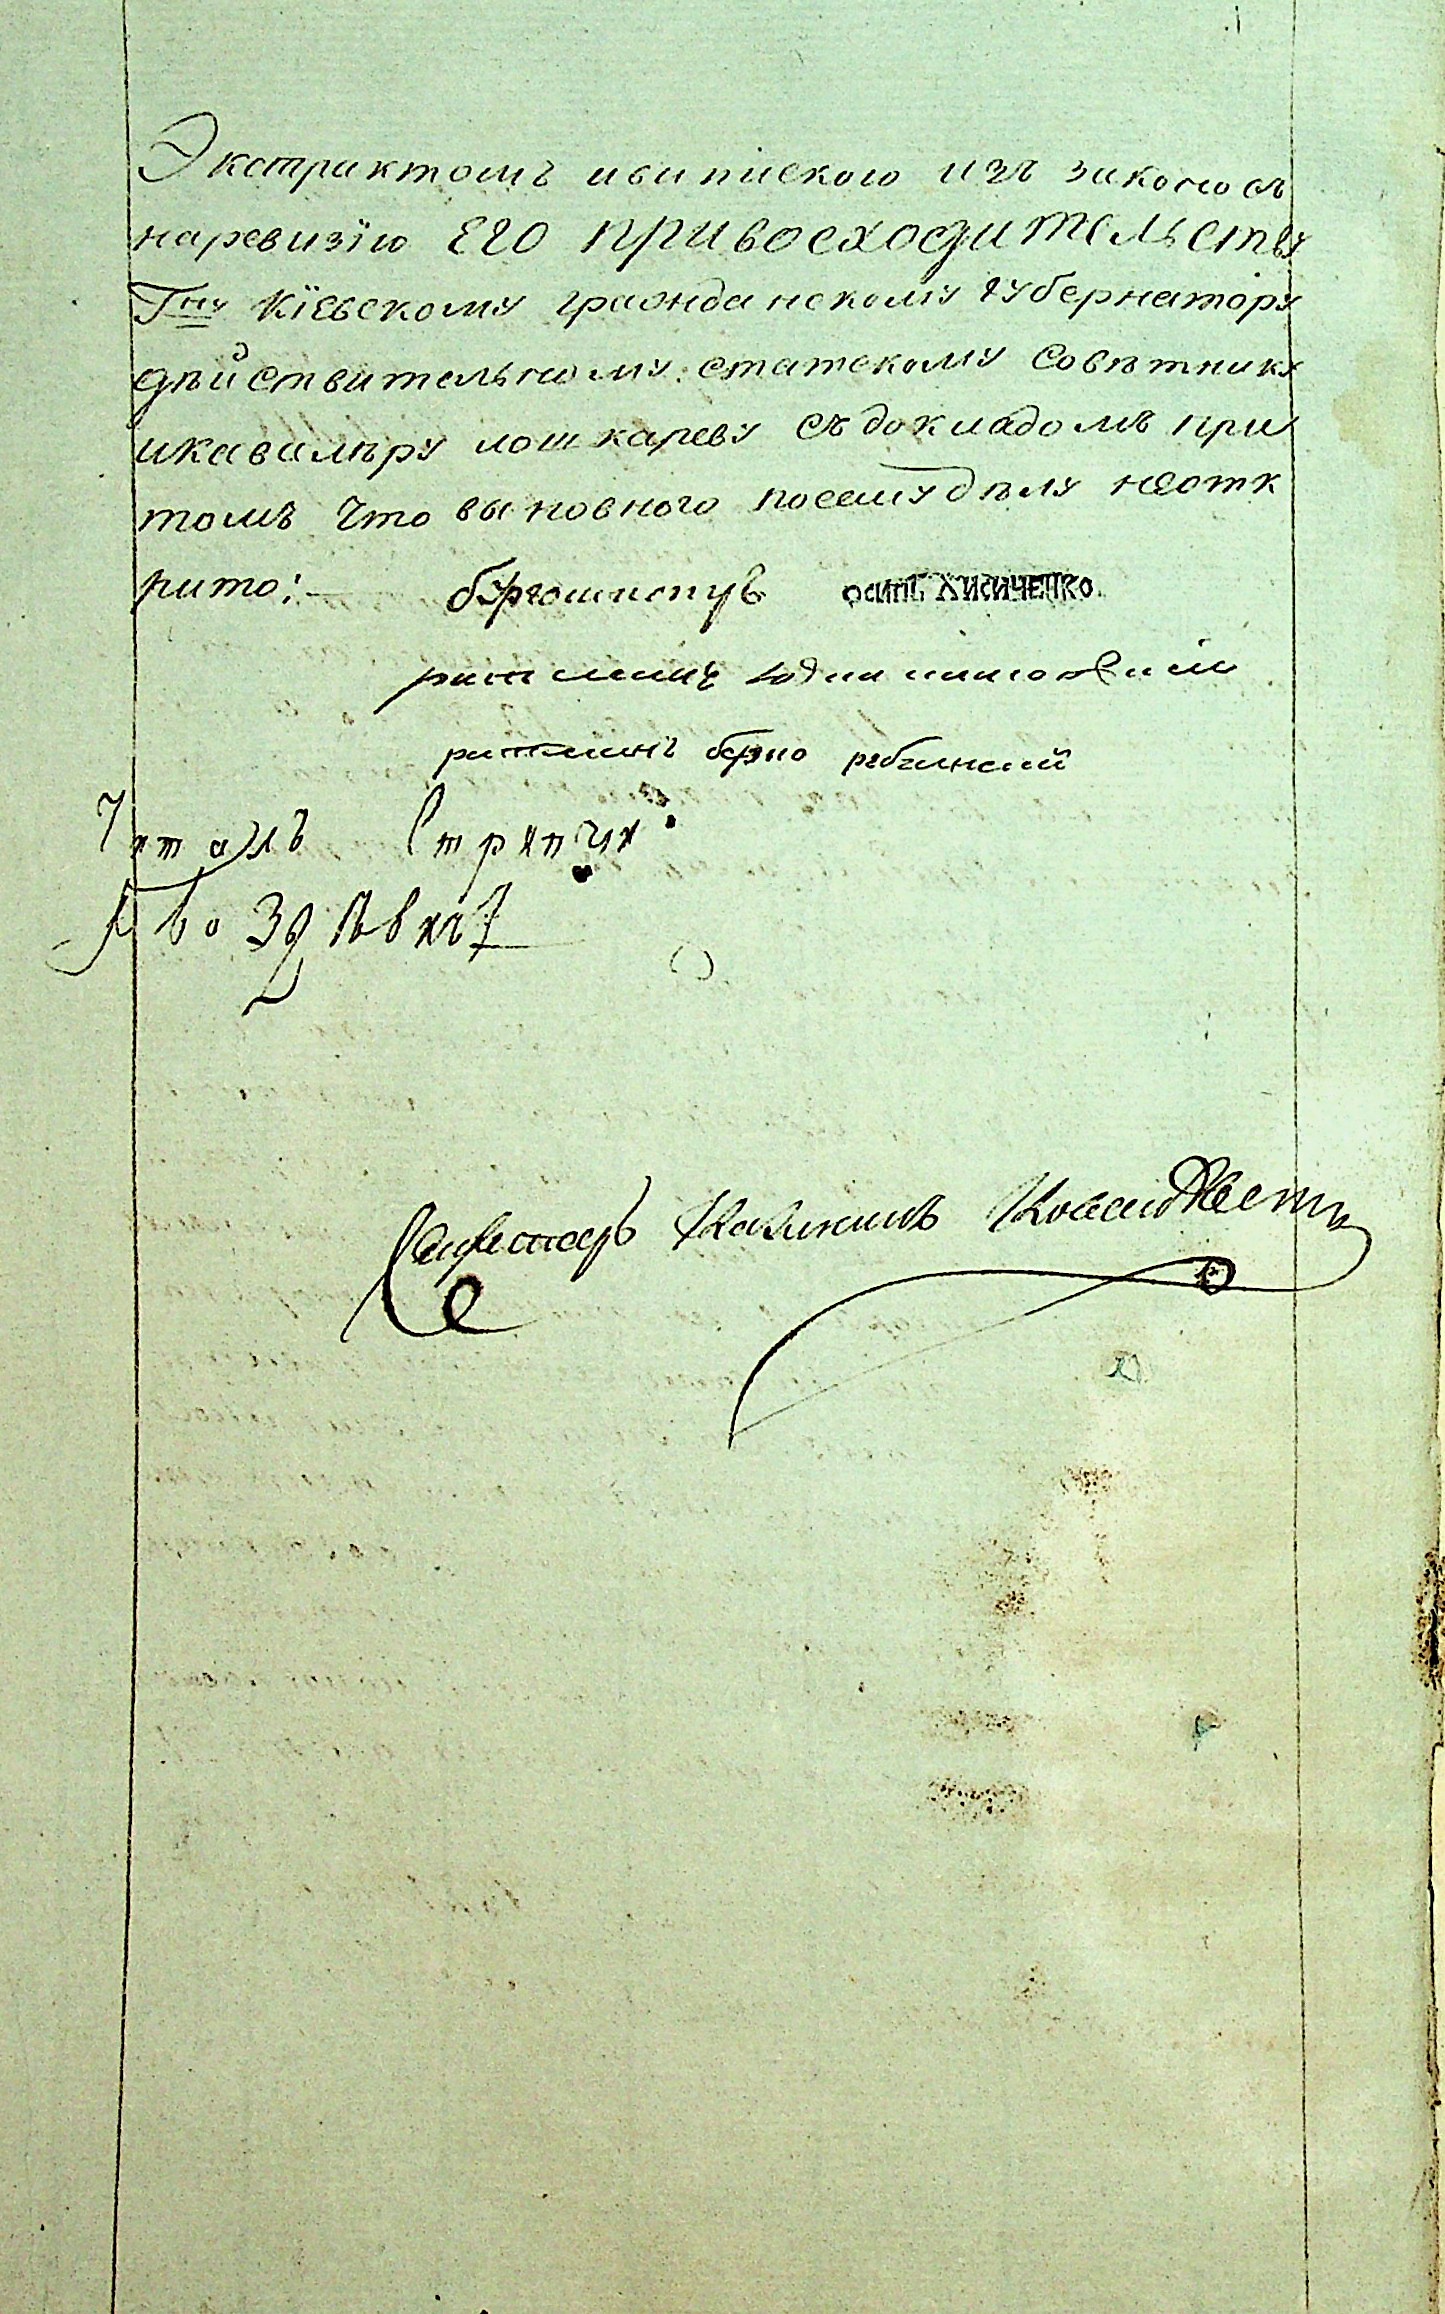 Экстрактомъ ивипискою изъ законовъ
наревизїю Его привосходительству
Гну Кїевскому гражданскому губернатору
дѣйствительному статскому совѣтнику
икавалѣру лошкареву съ докладомъ при
томъ что выновного посемудѣлу неотк
рито:
бургомистръ осипъ Лисиченко
ратманъ
ратманъ
Читалъ Стряпчи
Гвоздѣвичъ
Секретарь